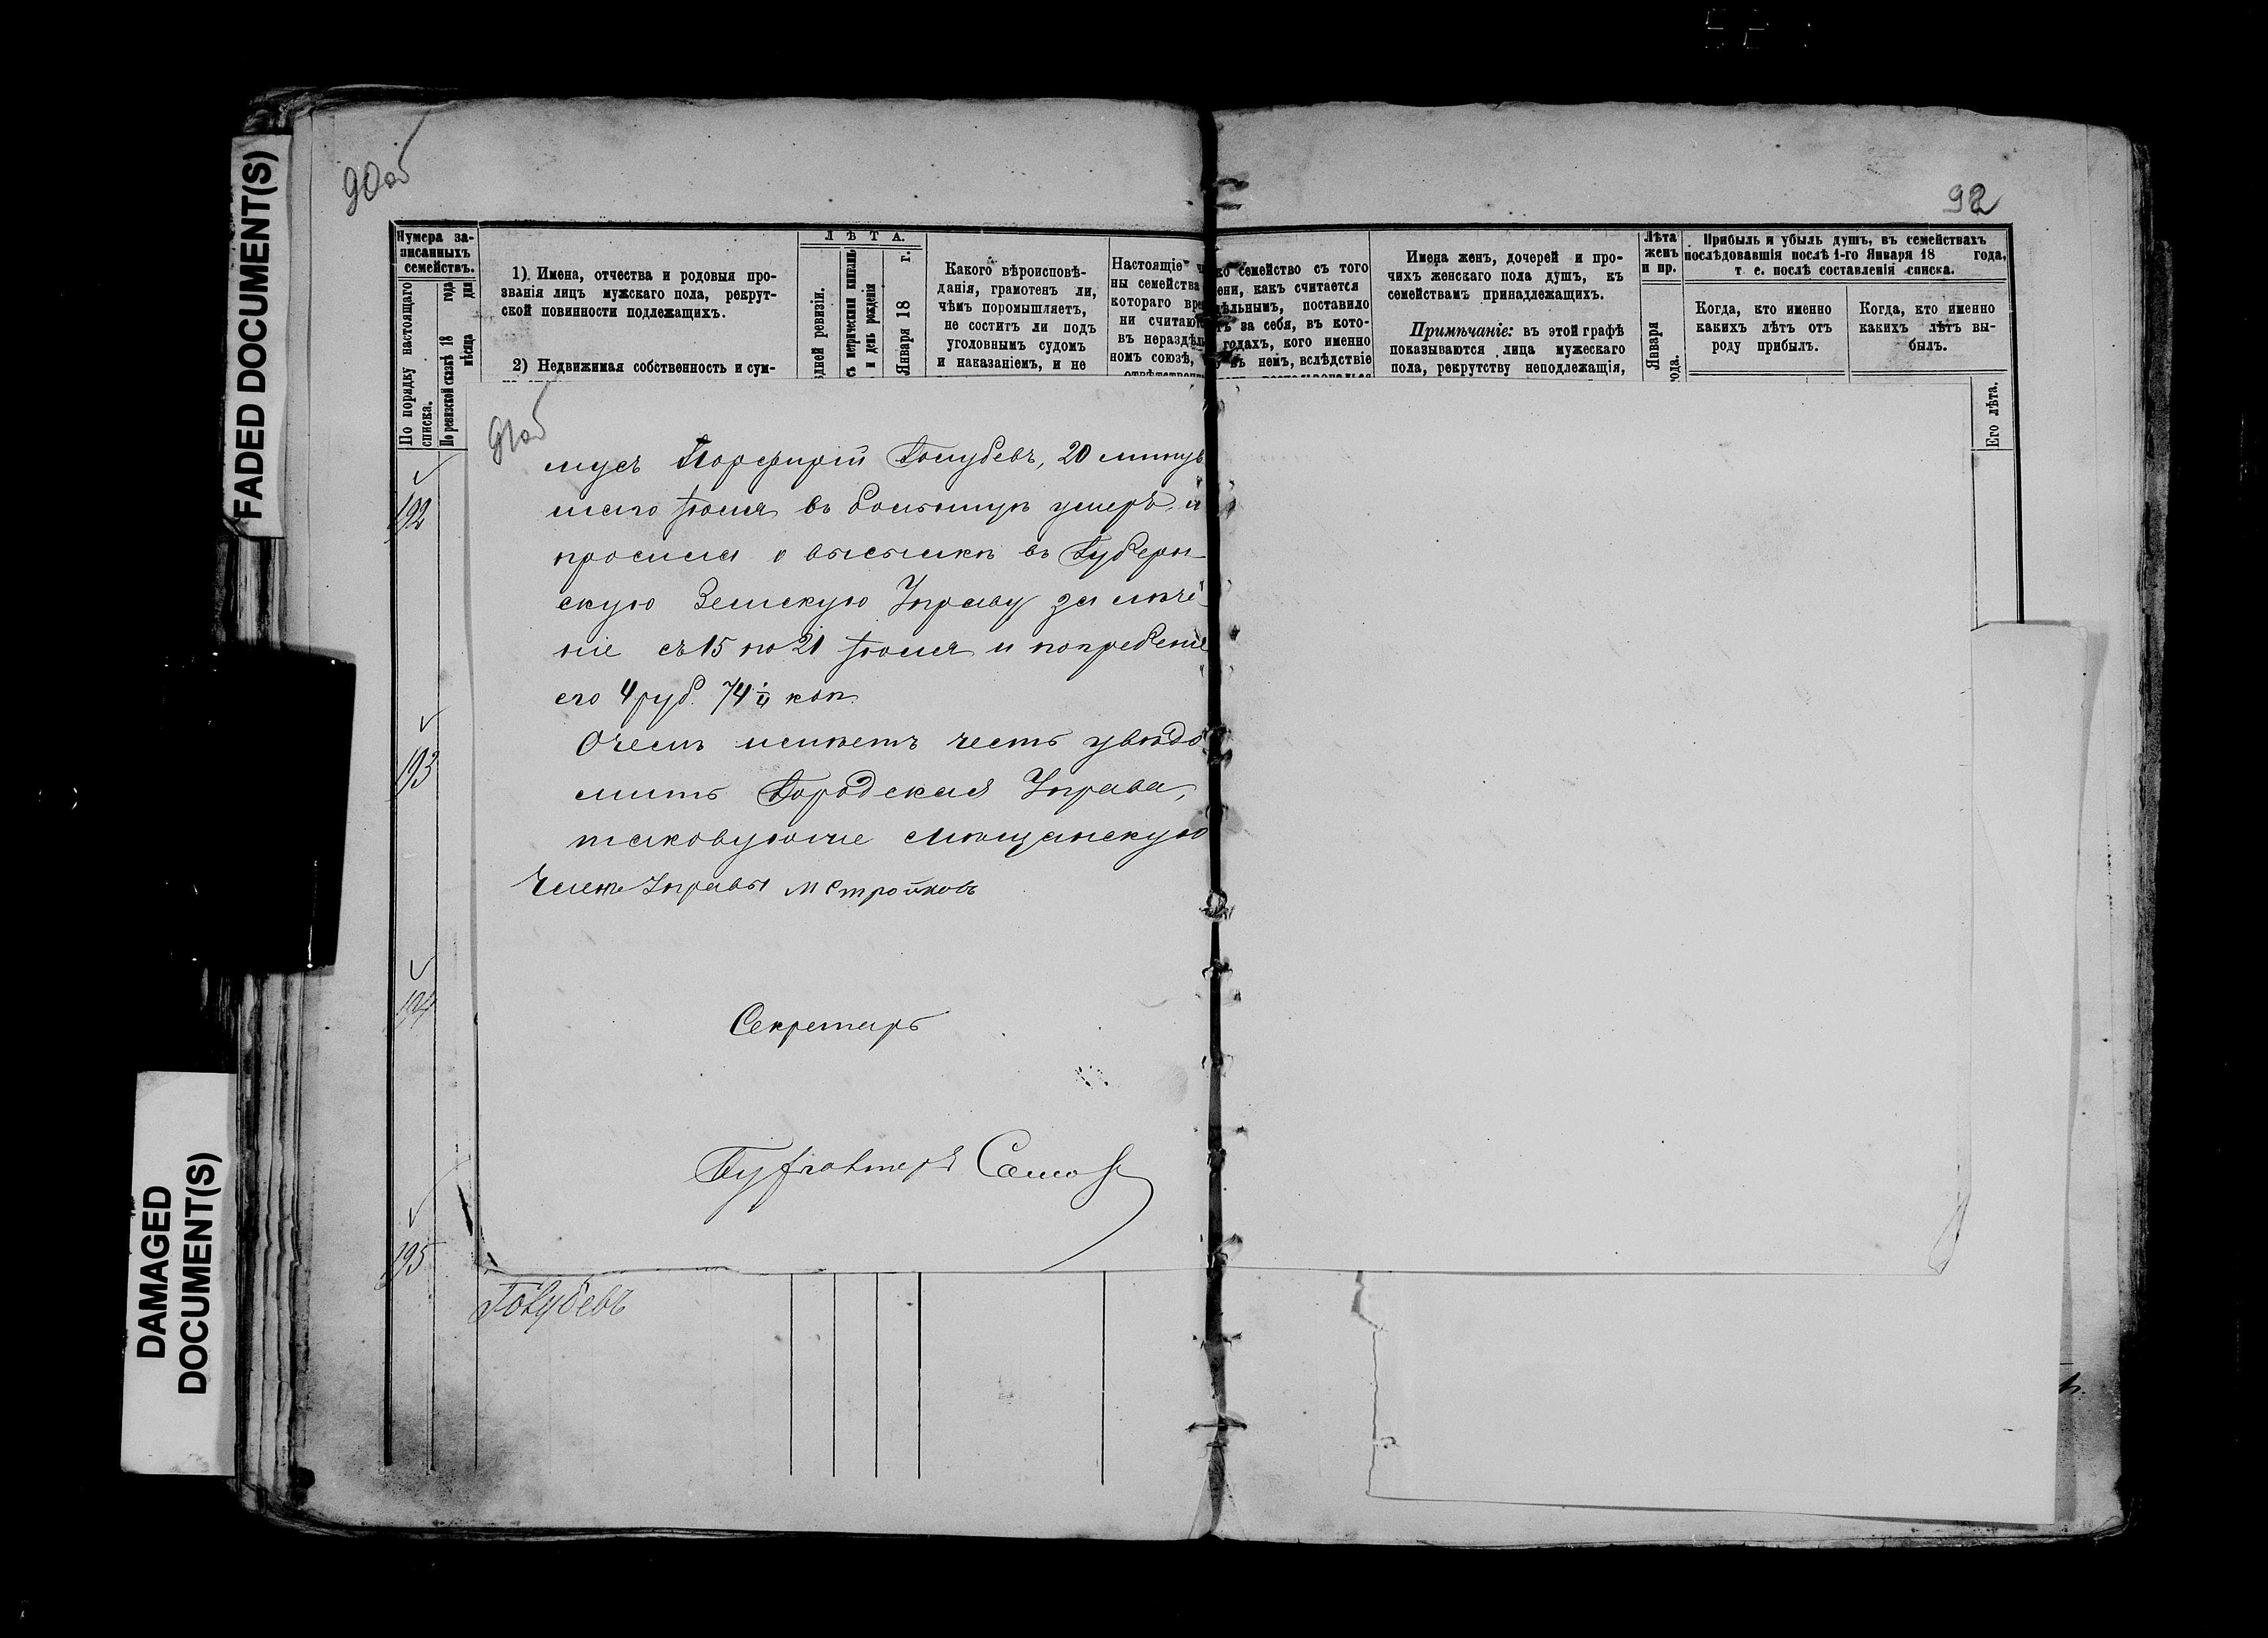 FADED DOCUMENT(S)
DAMAGED
DOCUMENT(S)
90об
Нумера за-
писанныхъ
семействъ.
По порядку настоящаго
списка.
По ревизской сказкѣ 18 года
мѣсяца дня
1) Имена, отчества и родовыя про-
званія лицъ мужскаго пола, рекрут-
ской повинности подлежащихъ.
2) Недвижимая собственность и сум-
ЛѢТА.
дней ревизіи.
съ метрическими книгами
и день рожденія
Января 18 г.
Какого вѣроисповѣ-
данія, грамотенъ ли,
чѣмъ поромышляетъ,
не соститъ ли подъ
уголовнымъ судомъ
и наказаніемъ, и не
Настоящіе ч
ны семейства
котораго вре
ни считаю
въ нераздѣль
номъ союзѣ,
192
193
194
195
91об
мусъ Порфирій Голубевъ, 20 минув
шаго Іюля въ больницѣ умеръ, и
просила о высылкѣ въ Губерн-
скую Земскую Управу за лѣче-
ніе съ 15 по 21 Іюля и погребеніе
его 4 руб. 74 1/4 коп.
О чемъ имѣетъ честь увѣдо
мить Городская Управа,
таковую же мѣщанскую
Членъ Управы М Стройковъ
Секретарь
Бухгалтеръ
Голубевъ
92
ко семейство съ того
ени, какъ считается
дѣльнымъ, поставило
тъ за себя, въ кото-
годахъ, кого именно
въ немъ, вслѣдствіе
Имена женъ, дочерей и про-
чихъ женскаго пола душъ, къ
семействамъ принадлежащихъ.
Примѣчаніе: въ этой графѣ
показываются лица мужескаго
пола, рекрутству неподлежащія,
Лѣта
женъ
и пр.
Января
года.
Прибыль и убыль душъ, въ семействахъ
послѣдовавшія послѣ 1-го Января 18 года,
т. е. послѣ составленія списка.
Когда, кто именно
какихъ лѣтъ отъ
роду прибылъ.
Когда, кто именно
какихъ лѣтъ вы-
былъ.
Его лѣта.